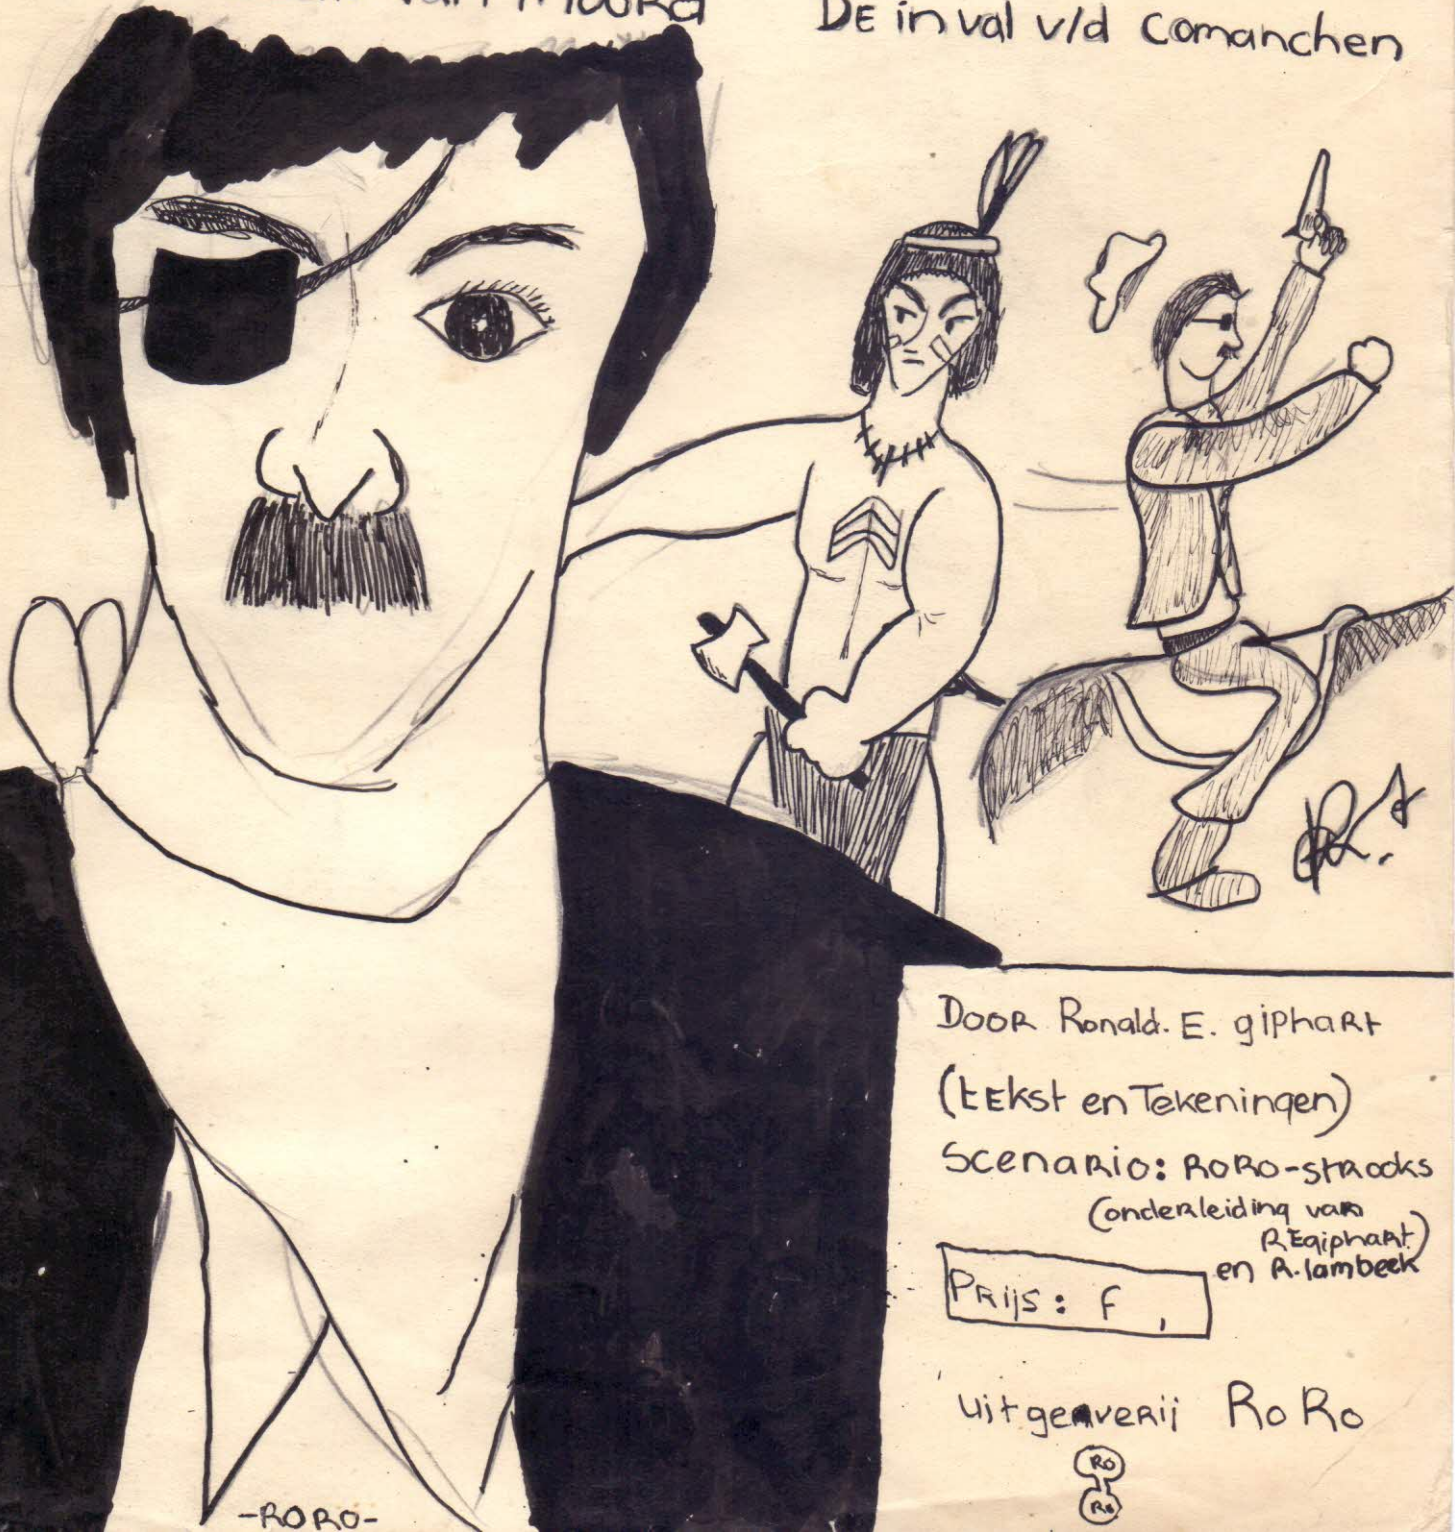 van moord
De inval v/d Comanchen
Door Ronald. E. giphart
(tekst en Tekeningen)
Scenario: RoRo-strooks
(onderleiding van
R Egiphart)
en R. lambeek
Prijs: f ,
uitgeverij RoRo
RO
Ro
-RORO-